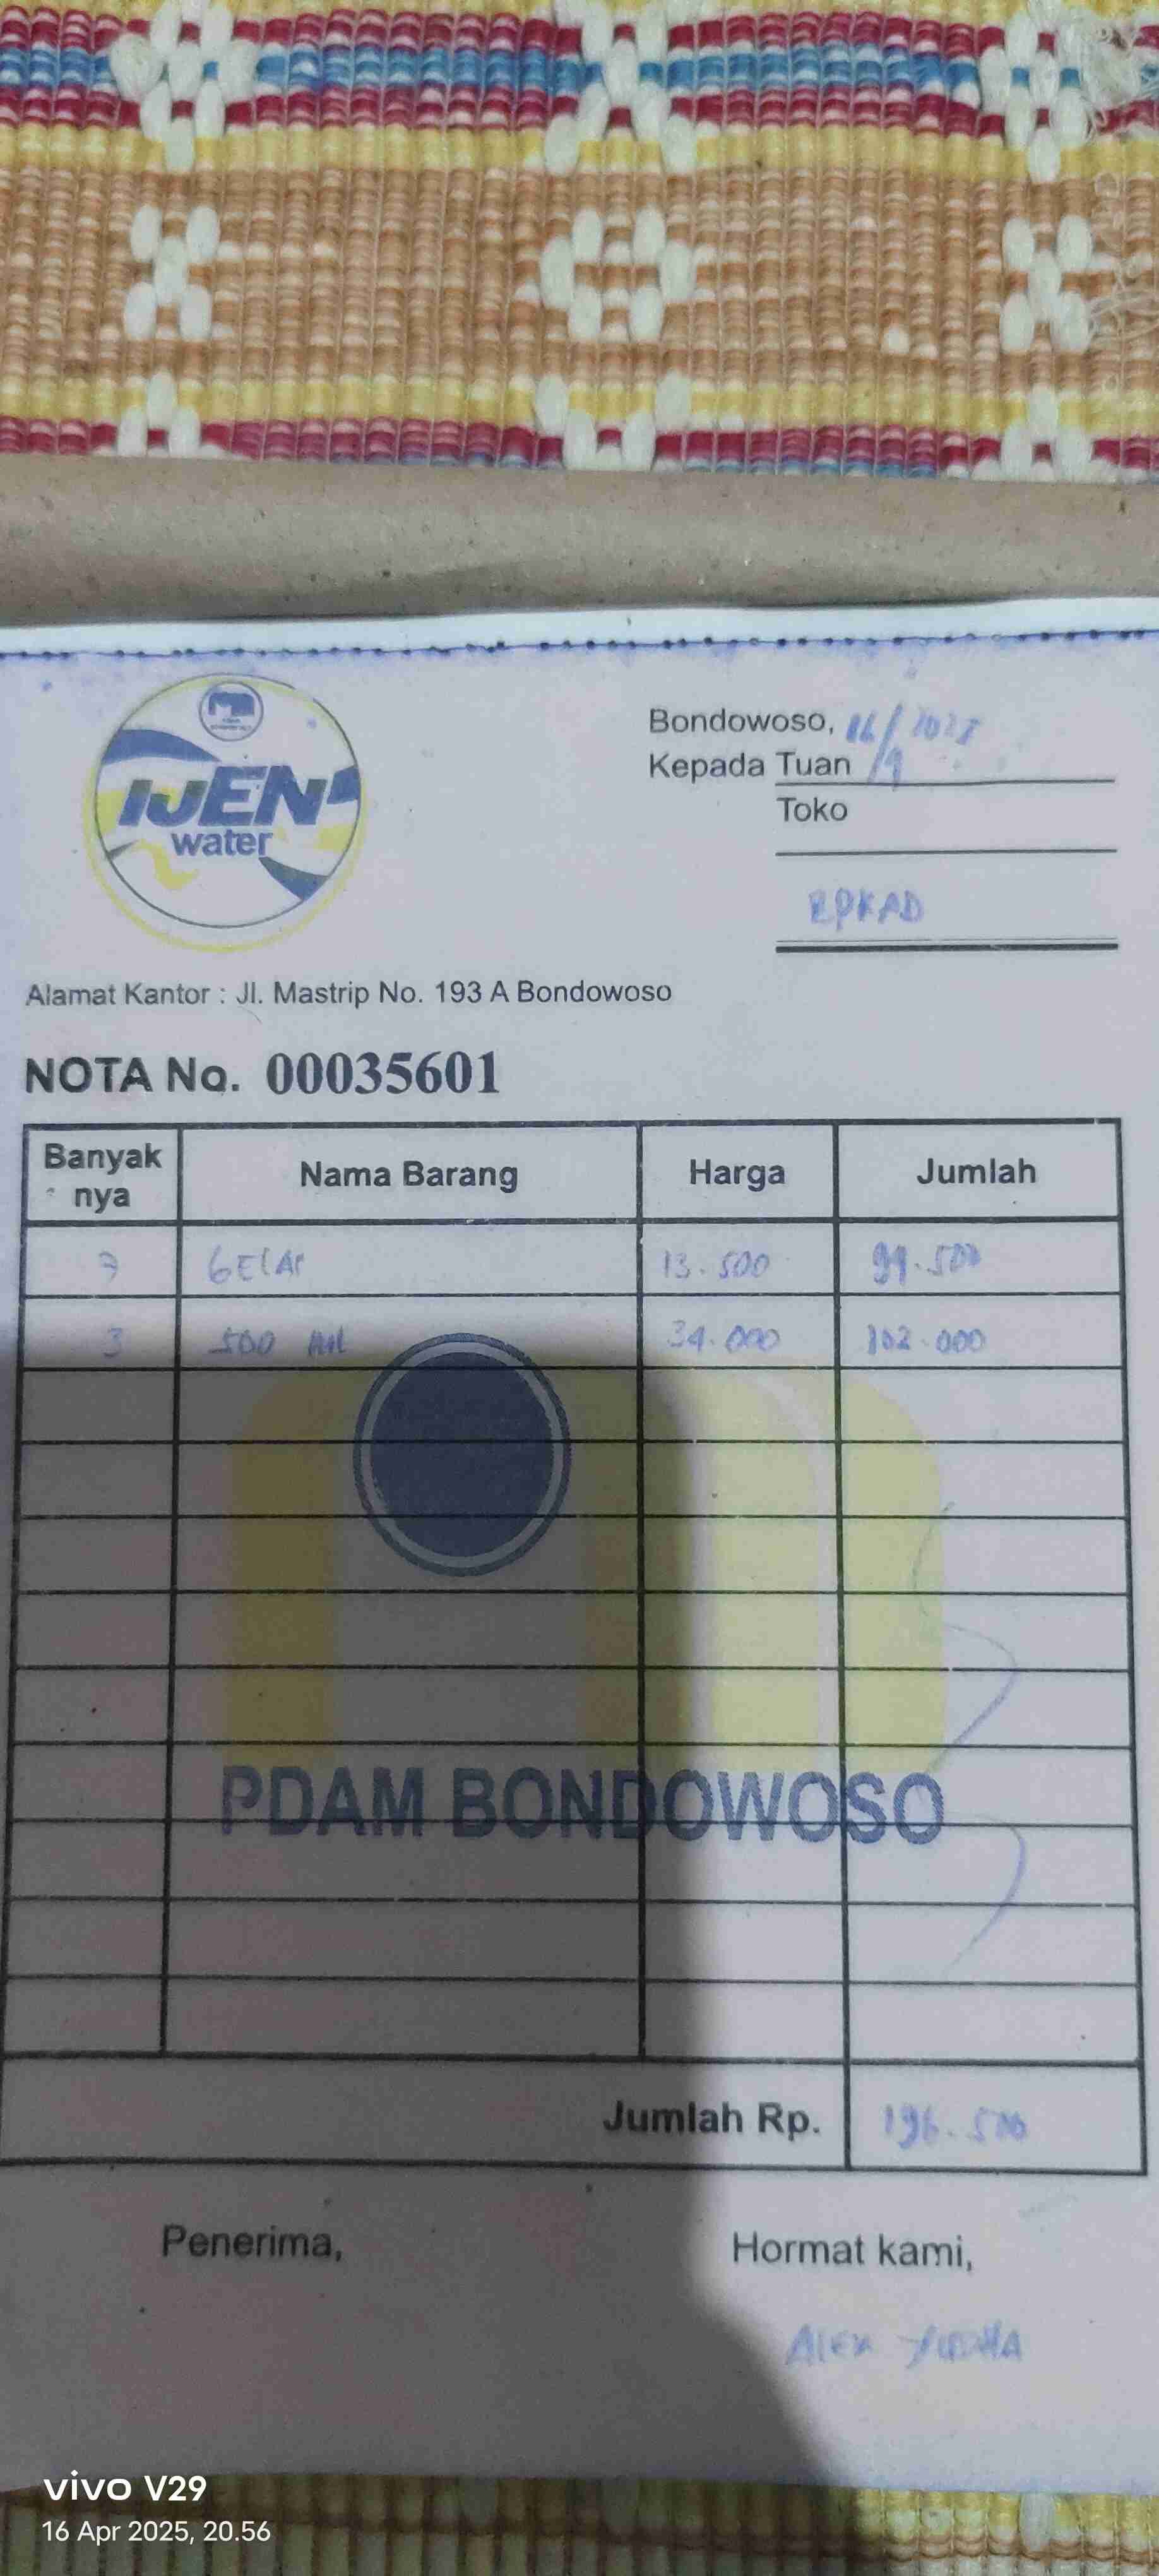 IJEN
water
Bondowoso, 16/4 2025
Kepada Tuan
Toko
BPKAD
Alamat Kantor : Jl. Mastrip No. 193 A Bondowoso
NOTA No. 00035601
Banyak nya Nama Barang Harga Jumlah
7 GELAS 13.500 94.500
3 500 ml 34.000 102.000
PDAM BONDOWOSO
Jumlah Rp. 196.500
Penerima, Hormat kami,
ALEX YUDHA
vivo V29
16 Apr 2025, 20.56